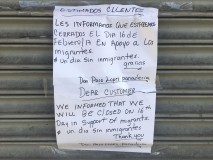 ESTIMADOS CLIENTES
LES INFORMAMOS QUE ESTAREMOS
CERRADOS EL DIA 16 de
Febrero/17 EN APOYO A LOS
migrantes.
# un dia sin inmigrantes.
gracias
Don Paco Lopez panaderia
DEAR CUSTOMER
WE INFORMED THAT WE
WILL BE CLOSED ON 16th
Day in Support of migrants
# un dia sin inmigrantes
Thank you
Don Paco Lopez panaderia